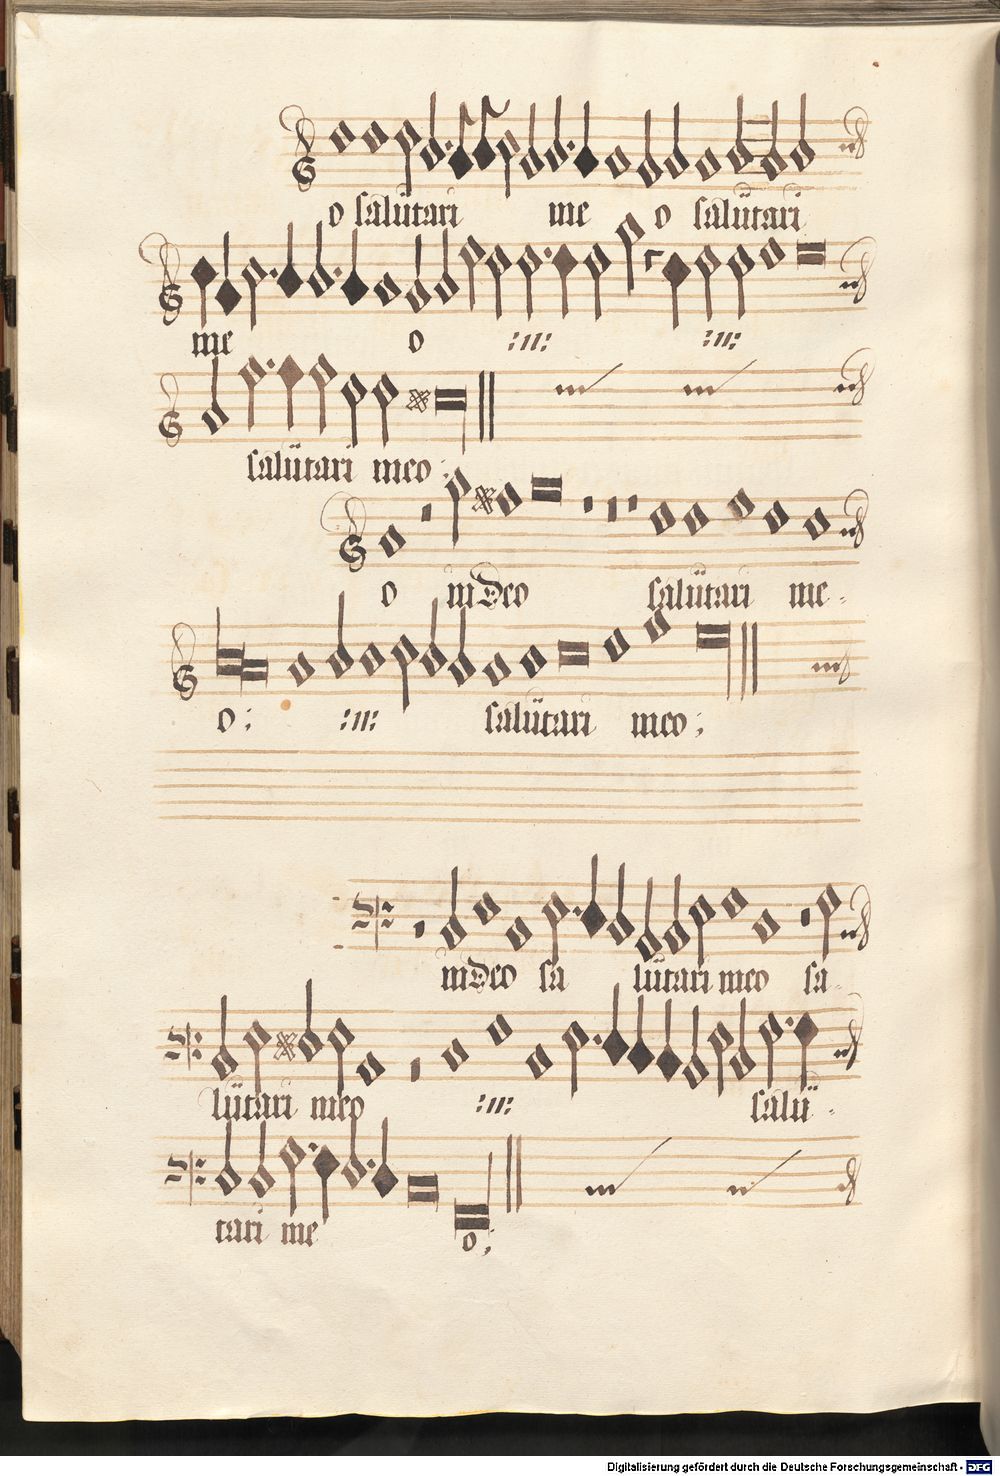 o salütari me o salütari
me o :॥: :॥:
salütari meo :
o in deo salütari me-
o : :॥: salütari meo ;
in deo sa lütari meo sa-
lütari meo :॥: salü-
tari me o ;
Digitalisierung gefördert durch die Deutsche Forschungsgemeinschaft - DFG